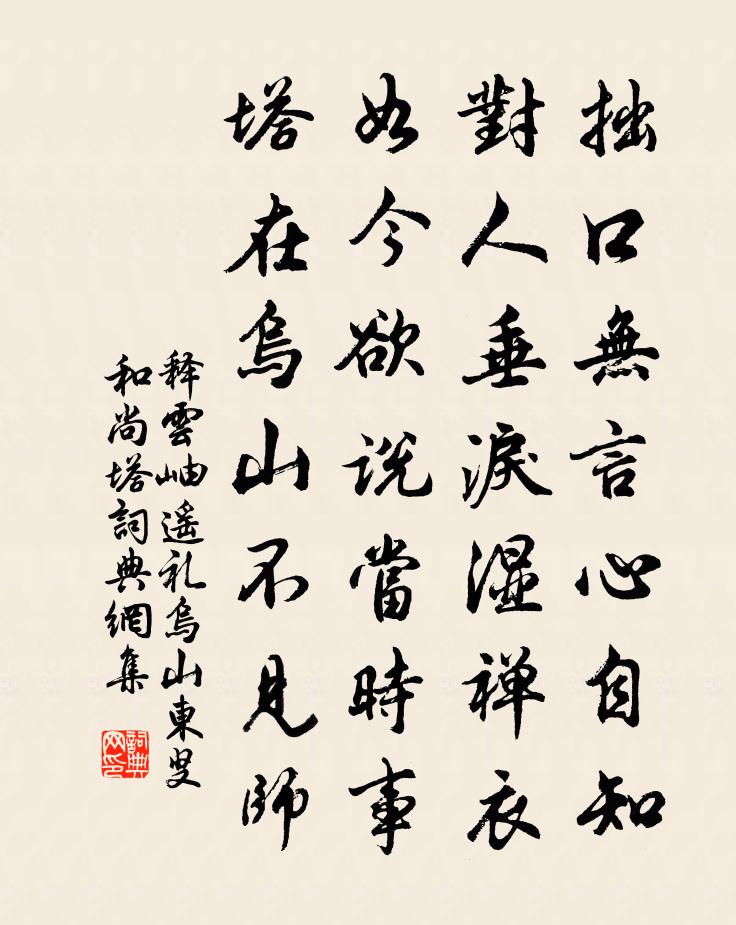 拙口無言心自知
對人垂淚湿禅衣
如今欲説當時事
塔在烏山不見師
释雲岫遥礼烏山東叟
和尚塔詞典網集
詞典
网印